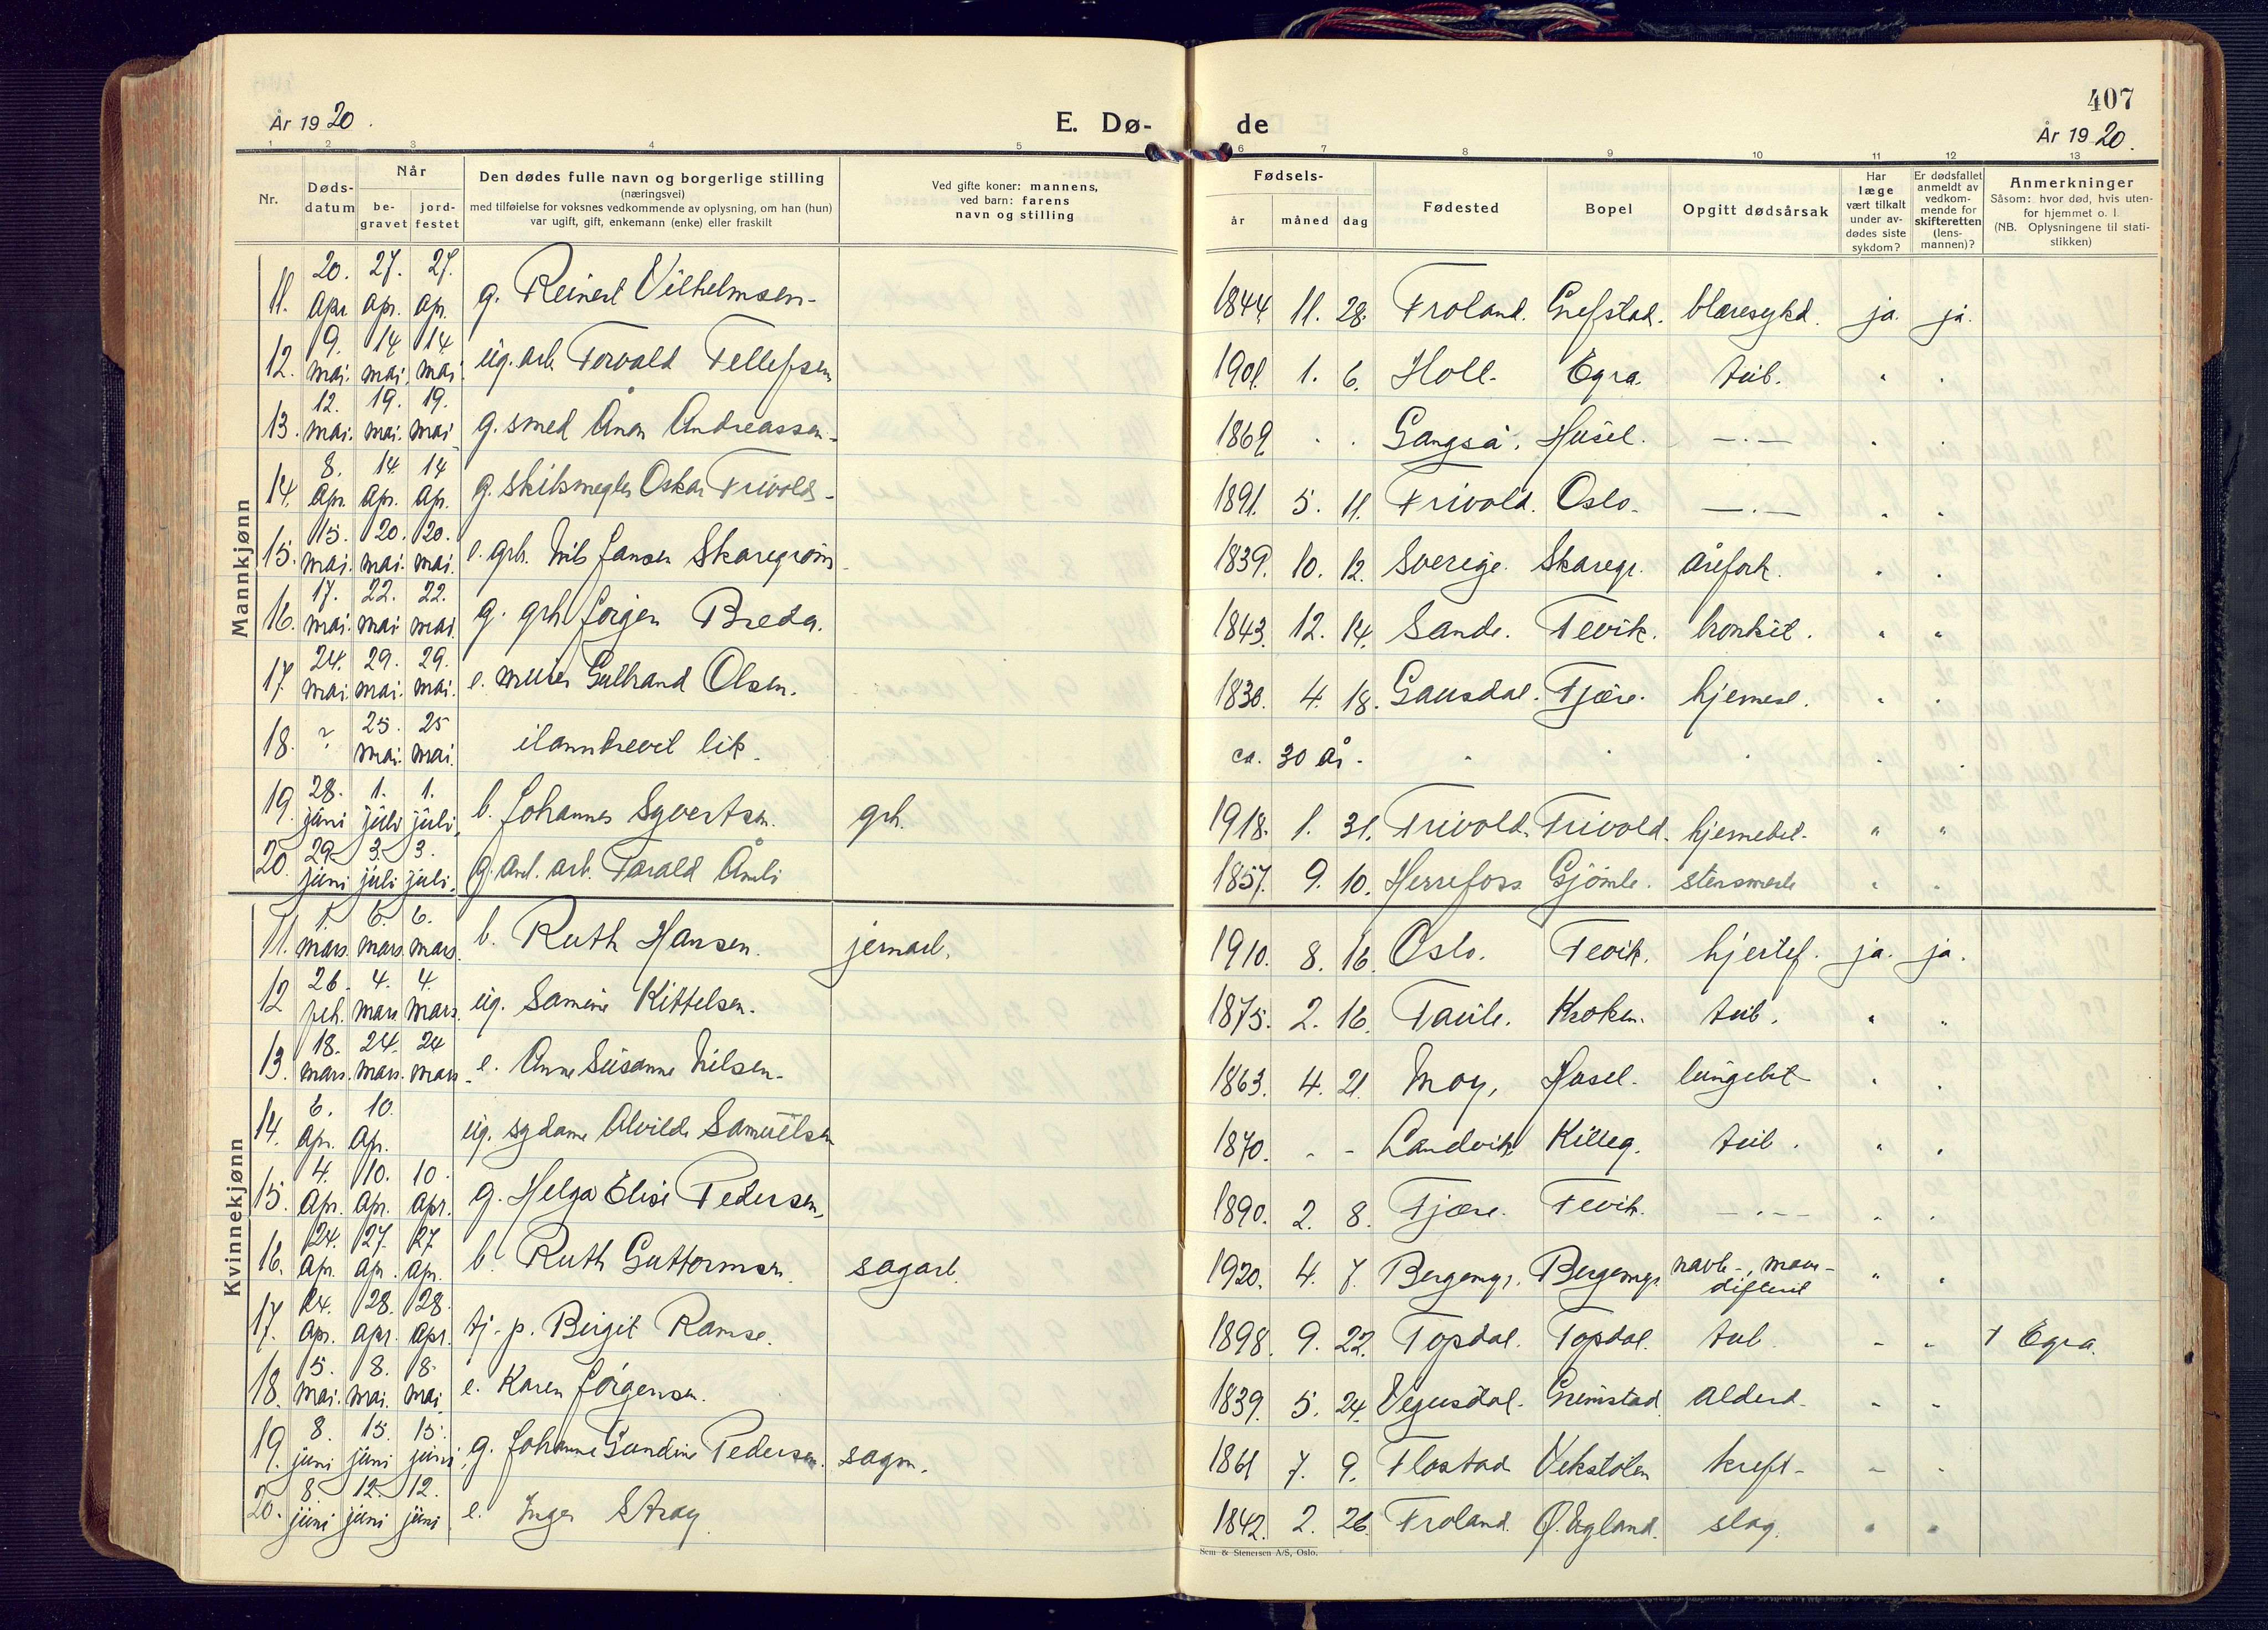 407
År 1920.
E. Dø- de
År 1920.
1 2 3 4 5 6 7 8 9 10 11 12 13
Nr. Døds-datum Når be-gravet jord-festet Den dødes fulle navn og borgerlige stilling (næringsvei) med tilføielse for voksnes vedkommende av oplysning, om han (hun) var ugift, gift, enkemann (enke) eller fraskilt Ved gifte koner: mannens, ved barn: farens navn og stilling Fødsels- år måned dag Fødested Bopel Opgitt dødsårsak Har læge vært tilkalt under av-dødes siste sykdom? Er dødsfallet anmeldt av vedkom-mende for skifteretten (lens-mannen)? Anmerkninger Såsom: hvor død, hvis uten-for hjemmet o. l. (NB. Oplysningene til stati-stikken)
Mannkjønn
11. 20. apr 27. apr. 27. apr. g. Reinert Vilhelmsen- 1844 11. 28. Froland. Grefstad. blæresykd. ja. ja.
12. 9. mai. 14 mai. 14 mai. ug. arb. Torvald Tellefsen 1901. 1. 6. Holl. Egra. tub. " "
13. 12. mai. 19. mai. 19. mai g. smed Ånon Andreassen- 1869 . . Gangså. Husel. —.— " "
14. 8. Apr. 14. Apr. 14 Ap. g. skibsmegler Oskar Frivold- 1891. 5. 11. Frivold. Oslo. —.— " "
15. 15. mai. 20. mai. 20. mai. e. grb. Nils Jansen Skaregrøm 1839. 10. 12. Sverige. Skaregr. årefork. " "
16. 17. mai. 22. mai 22. mai. g. grb. Jørgen Breda. 1843. 12. 14. Sande. Fevik. bronkit. " "
17. 24. mai. 29. mai. 29. mai. e. murer Gulbrand Olsen. 1830. 4. 18. Gausdal. Fjære. hjernesl. " "
18. ? 25. mai. 25 mai. ilanndrevet lik. ca. 30 år. " " " " "
19. 28. juni 1. juli 1. juli. b. Johannes Syvertsen. grb. 1918. 1. 31. Frivold. Frivold. hjernebet. " "
20. 29 juni 3. juli 3. juli. g. arb. Tarald Åmli 1857. 9. 10. Herrefoss Gjømle. " "
Kvinnekjønn
11. 1. mars 6. mars 6. mars. b. Ruth Hansen. jernarb. 1910. 8. 16. Oslo. Fevik. hjertef. ja. ja.
12 26. feb. 4. mars 4. mars. ug. Samine Kittelsen. 1875. 2. 16. Kroken. tub. " "
13. 18. mars. 24. mars. 24 mars. e. Anne Susanne Nilsen. 1863. 4. 21. Moy, Husel. lungebet " "
14. 6. Apr. 10. Ap. ug. sydame Alvilde Samuelsen 1870. - - Landvik Killeg. tub. " "
15. 4. Apr. 10. Apr. 10. apr. g. Helga Elise Pedersen, 1890. 2. 8. Fjære. Fevik. —.— " "
16. 24. Apr. 27. Ap. 27. apr. b. Ruth Guttormsen. sagarb. 1920. 4. 7. Bergemyr. Bergemyr. navle-, mave-difterit " "
17. 24. Apr. 28. apr. 28. apr. tj. p. Birgit Ramse. 1898. 9. 22. Topdal. Topdal. tub. " " † Egra.
18. 5. mai. 8. mai. 8. mai. e. Karen Jørgensen. 1839. 5. 24. Vegusdal. Grimstad alderd. " "
19. 8. juni 15. juni 15. juni. g. Johanne Gundine Pedersen. sagm. 1861 7. 9. Flostad Vekstølen kreft- " "
20. 8. juni 12. juni 12. juni e. Inger Stray 1842. 2. 26. Froland. Ø. Egland. slag. " "
Sem & Stenersen A/S, Oslo.